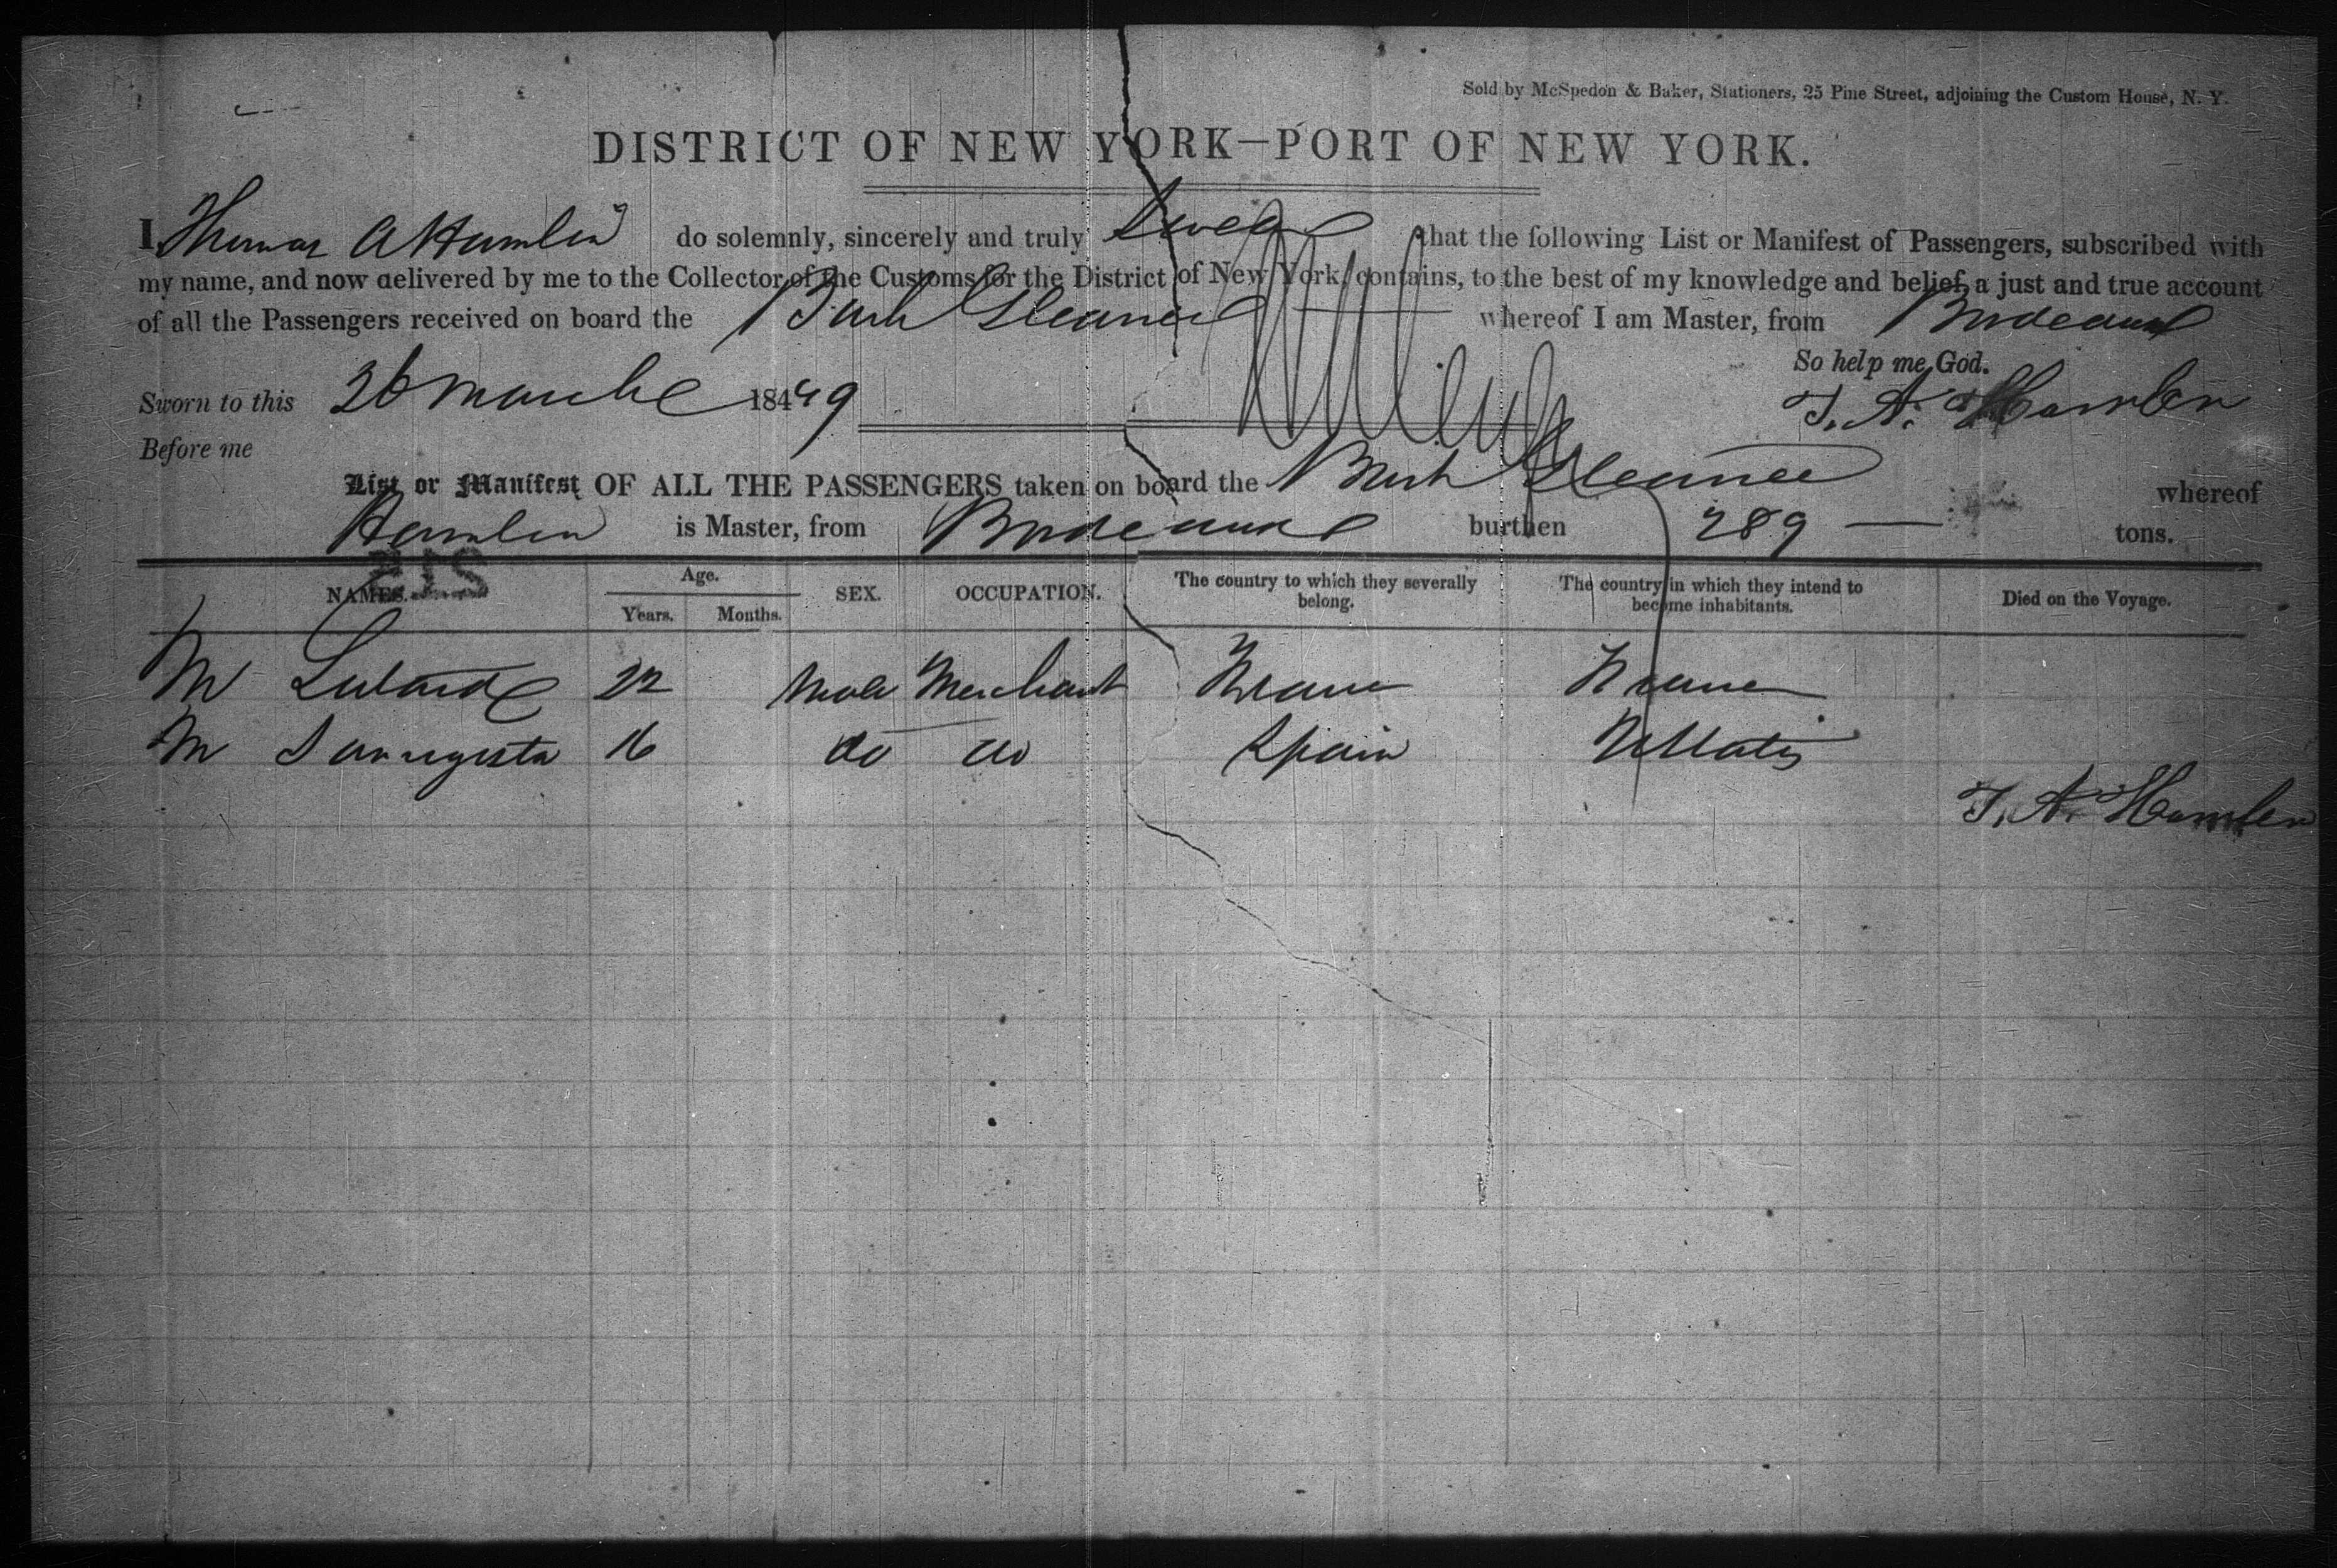 Sold by McSpedon & Baker, Stationers, 25 Pine Street, adjoining the Custom House, N. Y.
DISTRICT OF NEW YORK—PORT OF NEW YORK.
I, Thomas A Hamlin do solemnly, sincerely and truly Swear that the following List or Manifest of Passengers, subscribed with
my name, and now delivered by me to the Collector of the Customs for the District of New York, contains, to the best of my knowledge and belief, a just and true account
of all the Passengers received on board the Bark Gleaner whereof I am Master, from Bordeaux
So help me God.
Sworn to this 26 March 18449 T. A. Hamlin
Before me
List or Manifest OF ALL THE PASSENGERS taken on board the Bark Gleaner whereof
Hamlin is Master, from Bordeaux burthen 289 — tons.
215
NAMES. Age. Years. Months. SEX. OCCUPATION. The country to which they severally belong. The country in which they intend to become inhabitants. Died on the Voyage.
M 22 Male Merchant France France
M 16 do do Spain U States
T. A. Hamlin